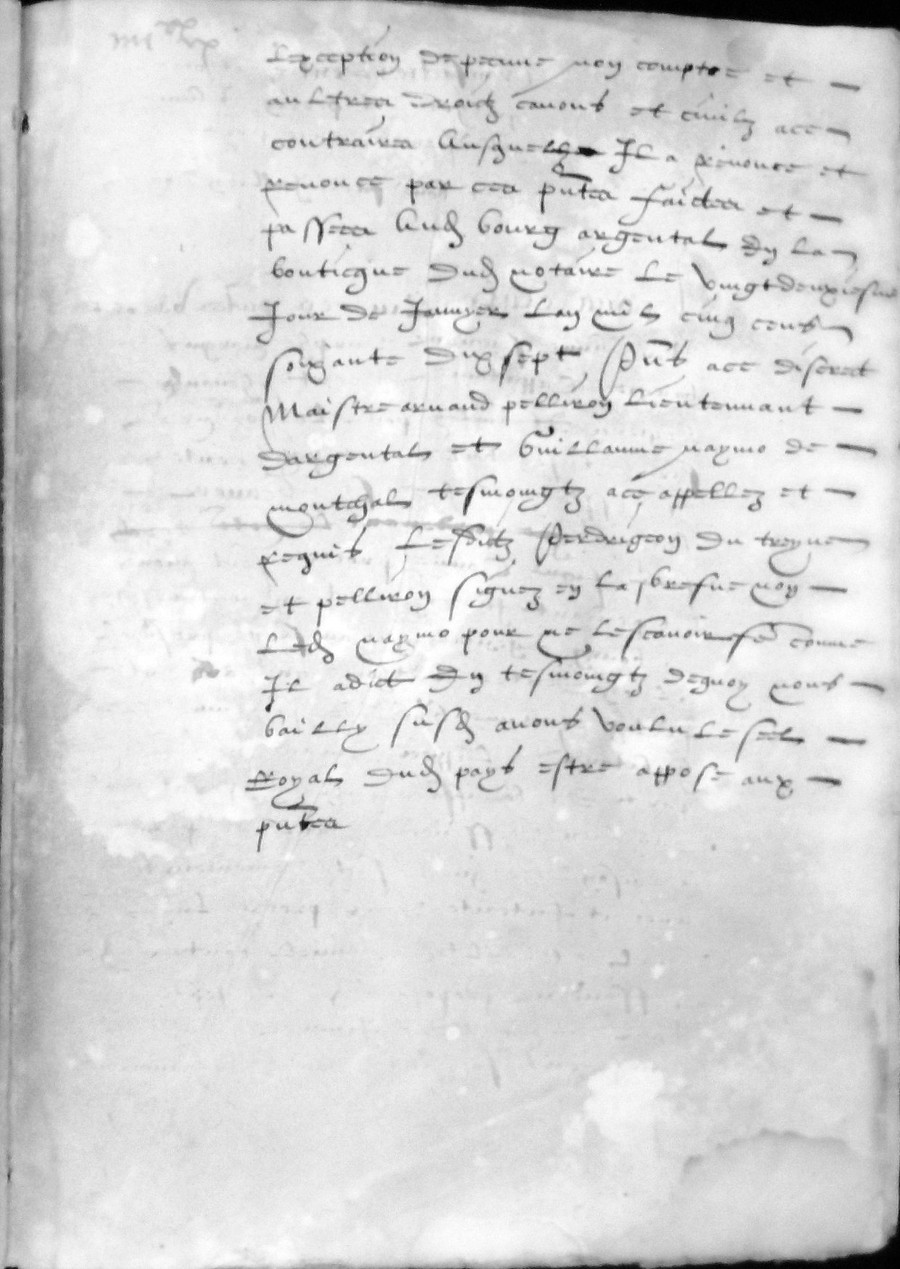 Lexception de pecune non comptee et
aultres droictz canons et civilz ace
contraires Ausquelz Il a renonce et
renonce par ces pntes faictes et
passees Aud bourg argental En la
bouticque dud notaire le vingtdeuxiesme
Jour de Janvyer Lan mil cinq cens
soixante dix sept Pns ace discret
Maistre arnaud pelliron lieutennant
dargental et Guillaume naymo de
montchal tesmoingtz ace appellez et
requis Lesditz Perdrigeon du treyne
et pelliron signez en la brefve non
Led naymo pour ne lescavoir fe comme
Il adict En tesmoingtz dequoy nous
bailly susd avons voulu le seel
Royal dud pays estre appose aux
pntes